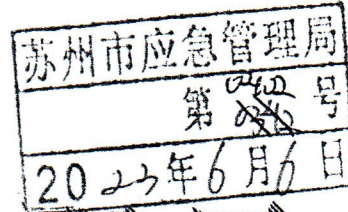 苏州市应急管理局
第 号
2023年6月6日